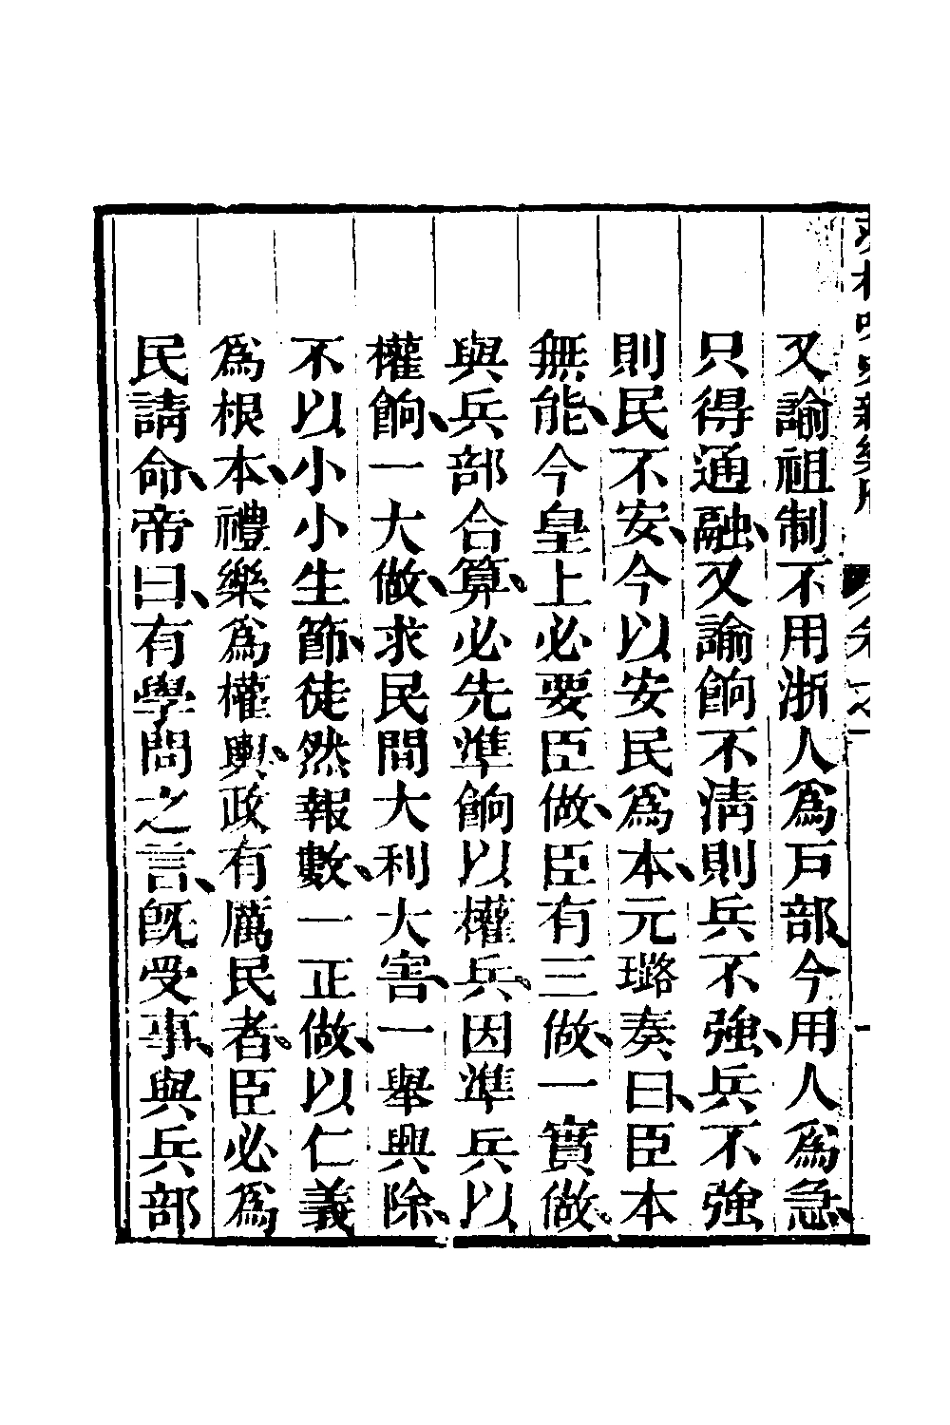 又諭祖制不用浙人爲戸部、今用人爲急、
只得通融、又諭餉不淸則兵不強、兵不強
則民不安、今以安民爲本、元璐奏曰、臣本
無能、今皇上必要臣做、臣有三做、一實做。
與兵部合算。必先準餉以權兵。因準兵以
權餉、一大做、求民間大利大害、一舉興除、
不以小小生節、徒然報數、一正做、以仁義
爲根本、禮樂爲權輿、政有厲民者。臣必爲
民請命、帝曰、有學問之言、旣受事、與兵部